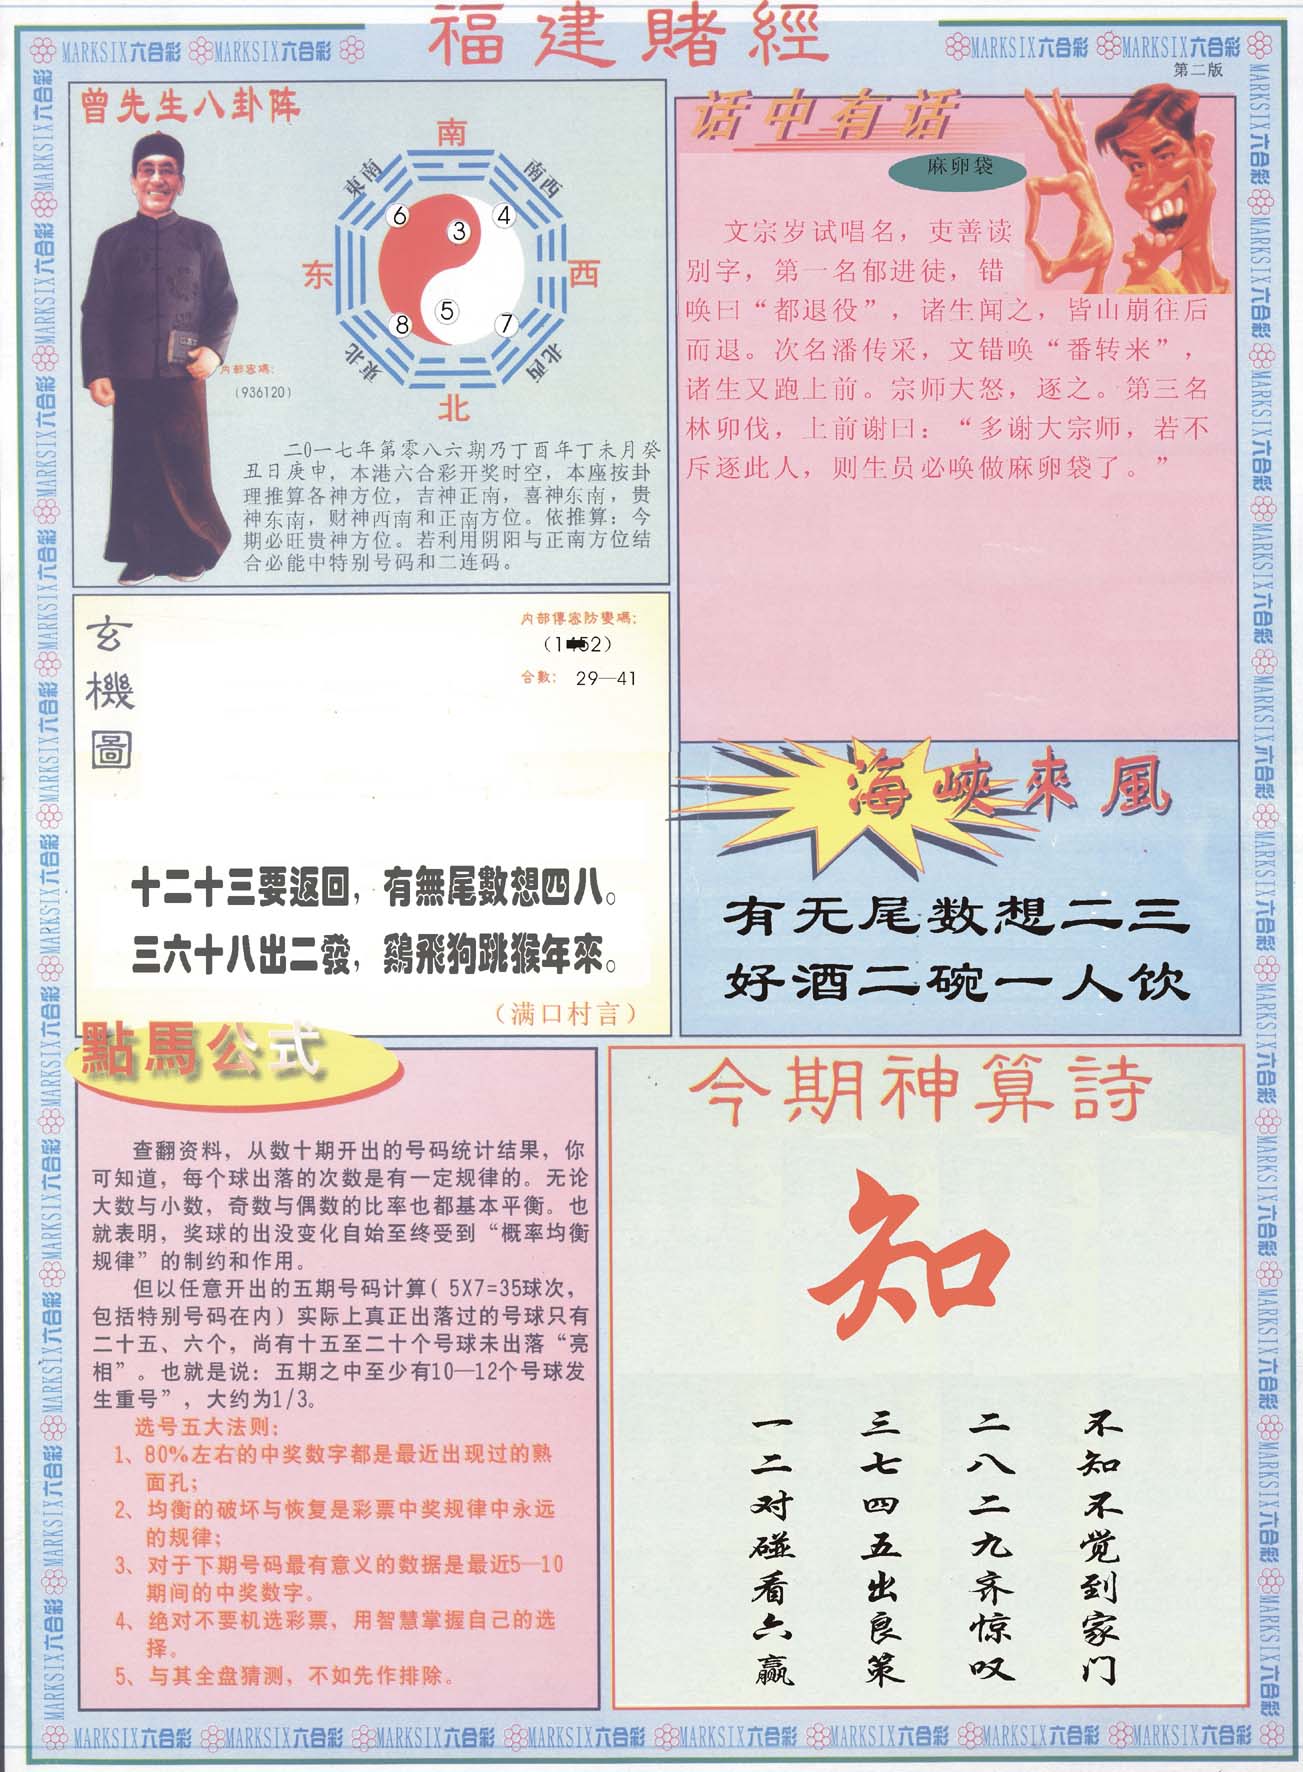 福建賭經
MARKSIX六合彩 MARKSIX六合彩
MARKSIX六合彩 MARKSIX六合彩
第二版
曾先生八卦阵
南
東南
南西
6
3
4
东
西
5
8
7
東北
北西
北
内部密碼:
(936120)
二0一七年第零八六期乃丁酉年丁未月癸
丑日庚申，本港六合彩开奖时空，本座按卦
理推算各神方位，吉神正南，喜神东南，贵
神东南，财神西南和正南方位。依推算：今
期必旺贵神方位。若利用阴阳与正南方位结
合必能中特别号码和二连码。
话中有话
麻卵袋
文宗岁试唱名，吏善读
别字，第一名郁进徒，错
唤曰“都退役”，诸生闻之，皆山崩往后
而退。次名潘传采，文错唤“番转来”，
诸生又跑上前。宗师大怒，逐之。第三名
林卯伐，上前谢曰：“多谢大宗师，若不
斥逐此人，则生员必唤做麻卵袋了。”
玄機圖
内部傳密防變碼:
合數: 29—41
十二十三要返回，有無尾數想四八。
三六十八出二發，鷄飛狗跳猴年來。
（满口村言）
海峽來風
有无尾数想二三
好酒二碗一人饮
點馬公式
查翻资料，从数十期开出的号码统计结果，你
可知道，每个球出落的次数是有一定规律的。无论
大数与小数，奇数与偶数的比率也都基本平衡。也
就表明，奖球的出没变化自始至终受到“概率均衡
规律”的制约和作用。
但以任意开出的五期号码计算( 5X7=35球次，
包括特别号码在内）实际上真正出落过的号球只有
二十五、六个，尚有十五至二十个号球未出落“亮
相”。也就是说：五期之中至少有10—12个号球发
生重号”，大约为1/3。
选号五大法则:
1、80%左右的中奖数字都是最近出现过的熟
面孔；
2、均衡的破坏与恢复是彩票中奖规律中永远
的规律；
3、对于下期号码最有意义的数据是最近5—10
期间的中奖数字。
4、绝对不要机选彩票，用智慧掌握自己的选
择。
5、与其全盘猜测，不如先作排除。
今期神算詩
知
不知不觉到家门
二八二九齐惊叹
三七四五出良策
一二对碰看六赢
MARKSIX六合彩 MARKSIX六合彩 MARKSIX六合彩 MARKSIX六合彩 MARKSIX六合彩 MARKSIX六合彩 MARKSIX六合彩 MARKSIX六合彩